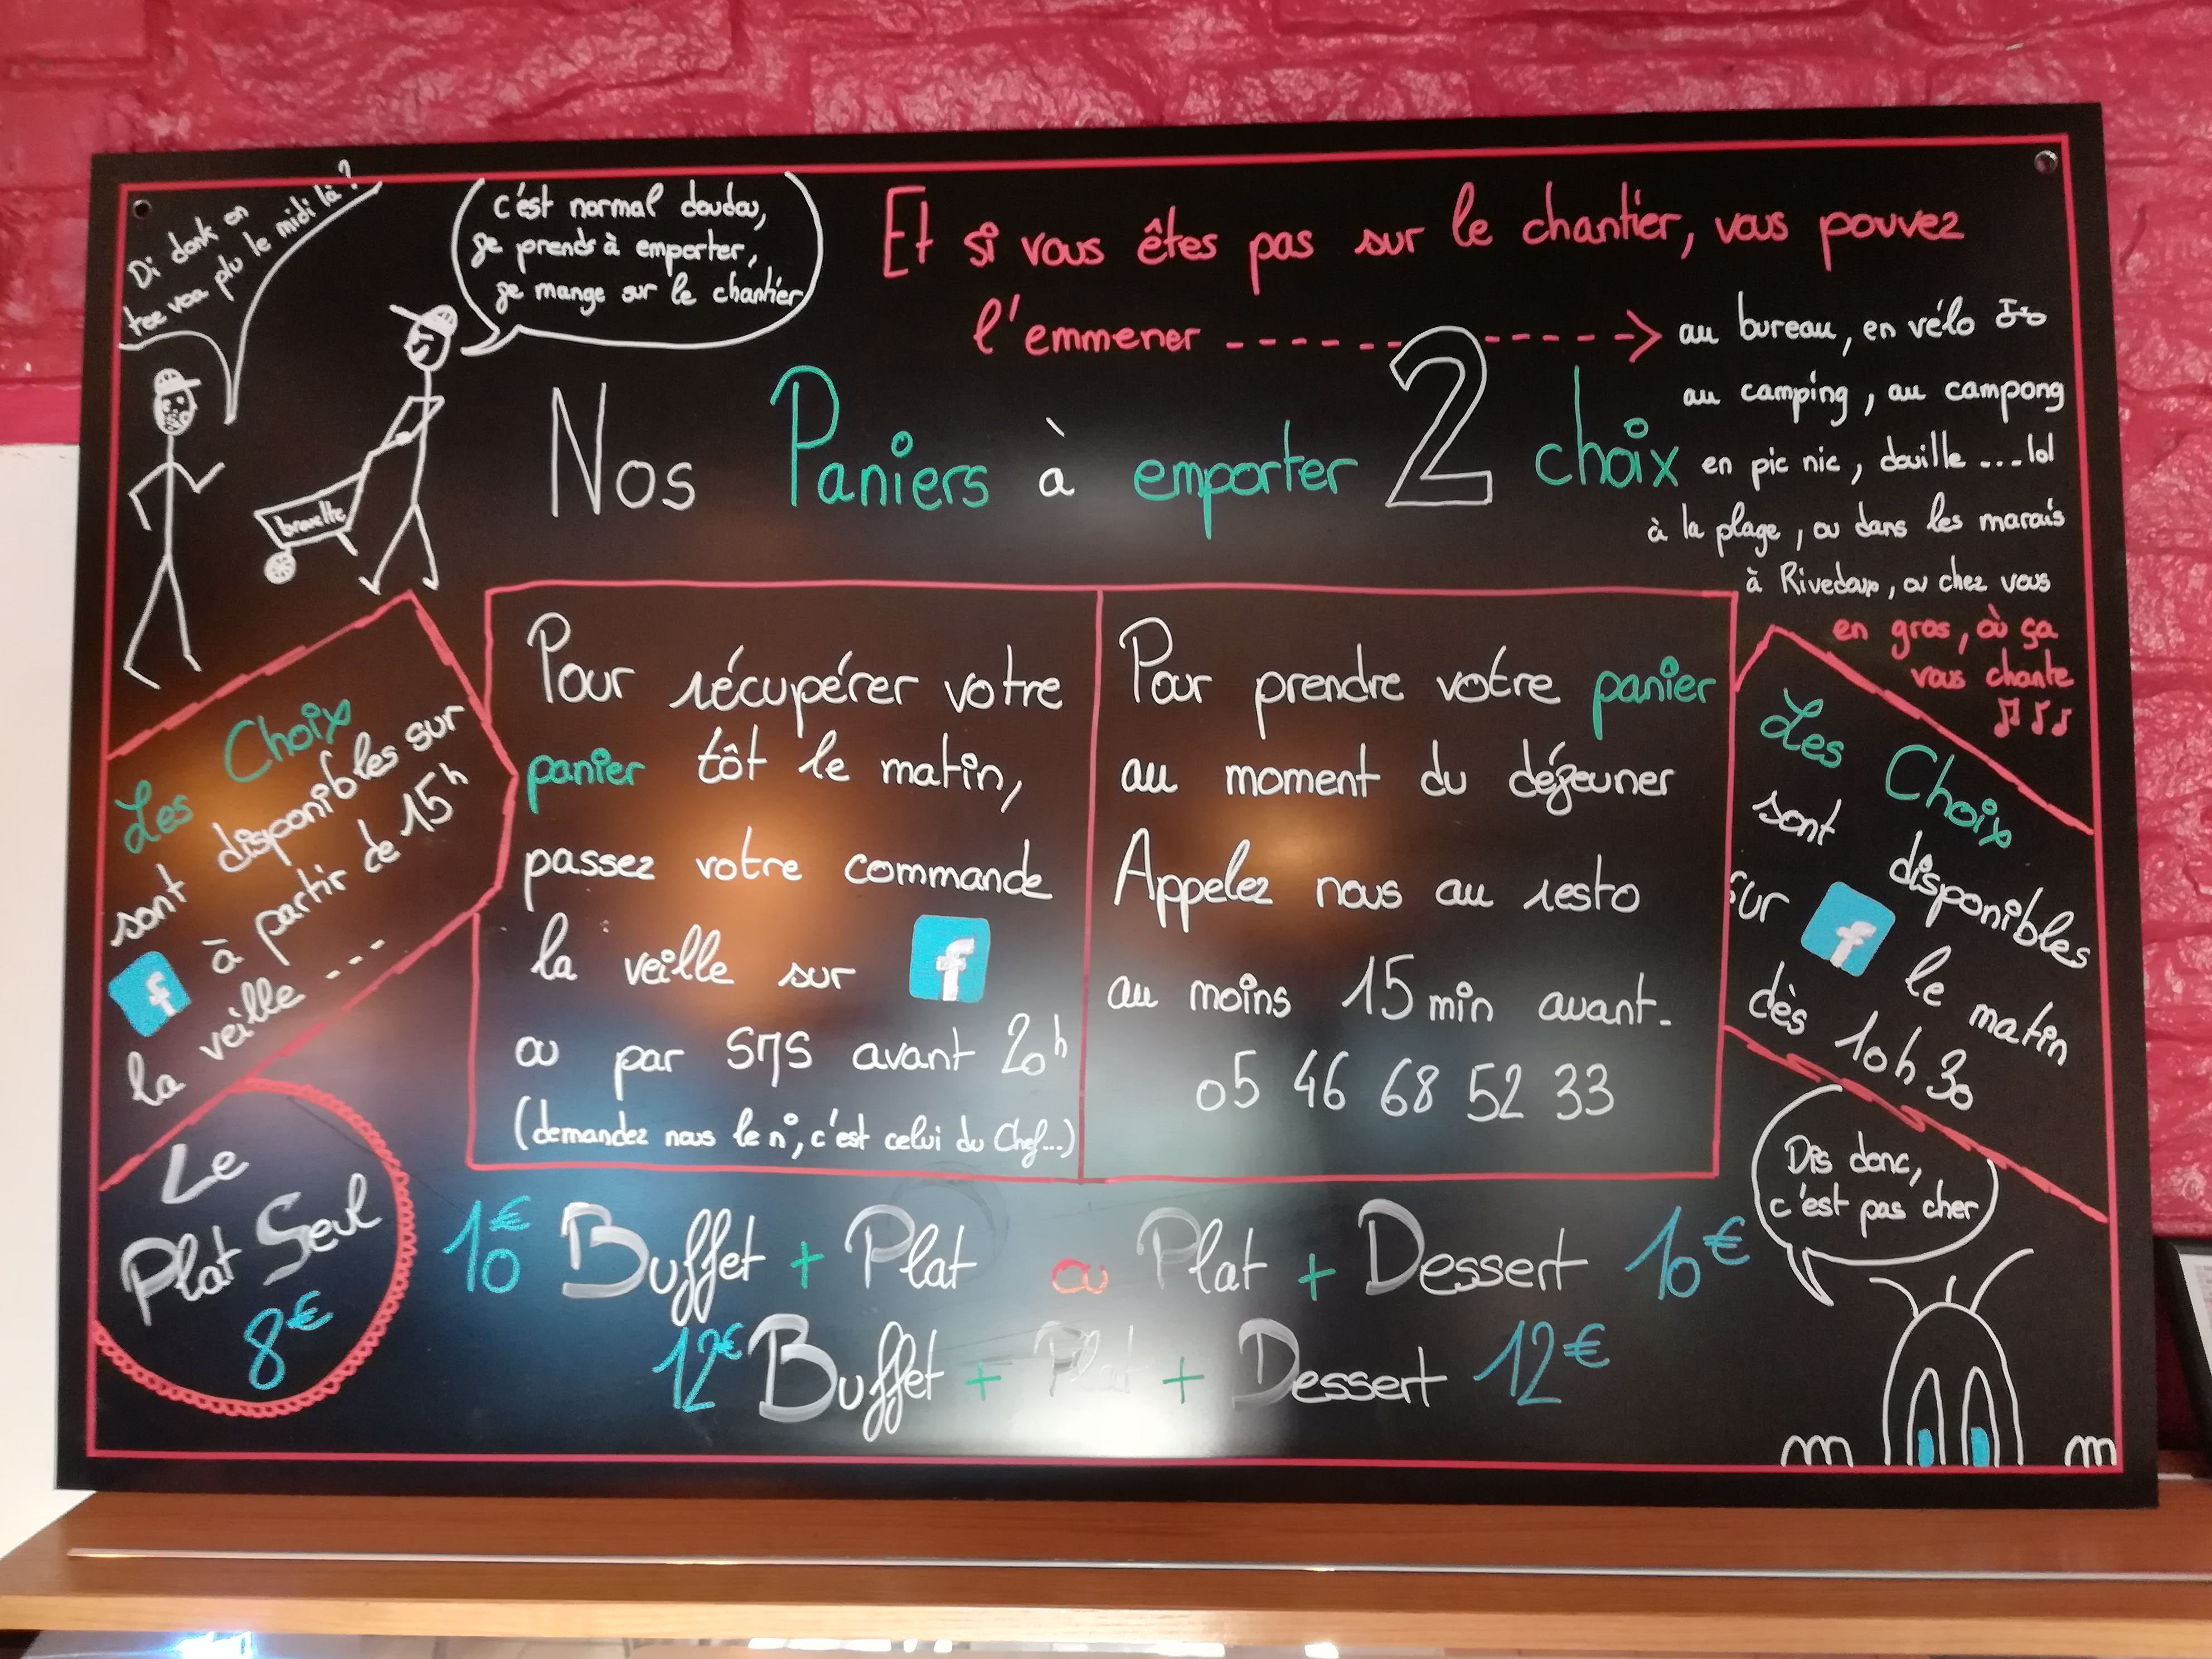 Di donk on
tee voa plu le midi là ?
c'est normal doudou,
je prends à emporter,
je mange sur le chantier
brouette
Et si vous êtes pas sur le chantier, vous pouvez
l'emmener ------->
au bureau, en vélo
au camping, au campong
en pic nic, douille ...lol
à la plage, ou dans les marais
à Rivedoux, ou chez vous
en gros, où ça
vous chante
Nos Paniers à emporter 2 choix
Les Choix
sont disponibles sur
f à partir de 15h
la veille ---
Pour récupérer votre
panier tôt le matin,
passez votre commande
la veille sur f
ou par SMS avant 20h
(demandez nous le n°, c'est celui du Chef...)
Pour prendre votre panier
au moment du déjeuner
Appelez nous au resto
au moins 15 min avant.
05 46 68 52 33
Les Choix
sont disponibles
sur f le matin
dès 10h30
Le
Plat Seul
8€
10€ Buffet + Plat ou Plat + Dessert 10€
12€ Buffet + Plat + Dessert 12€
Dis donc,
c'est pas cher